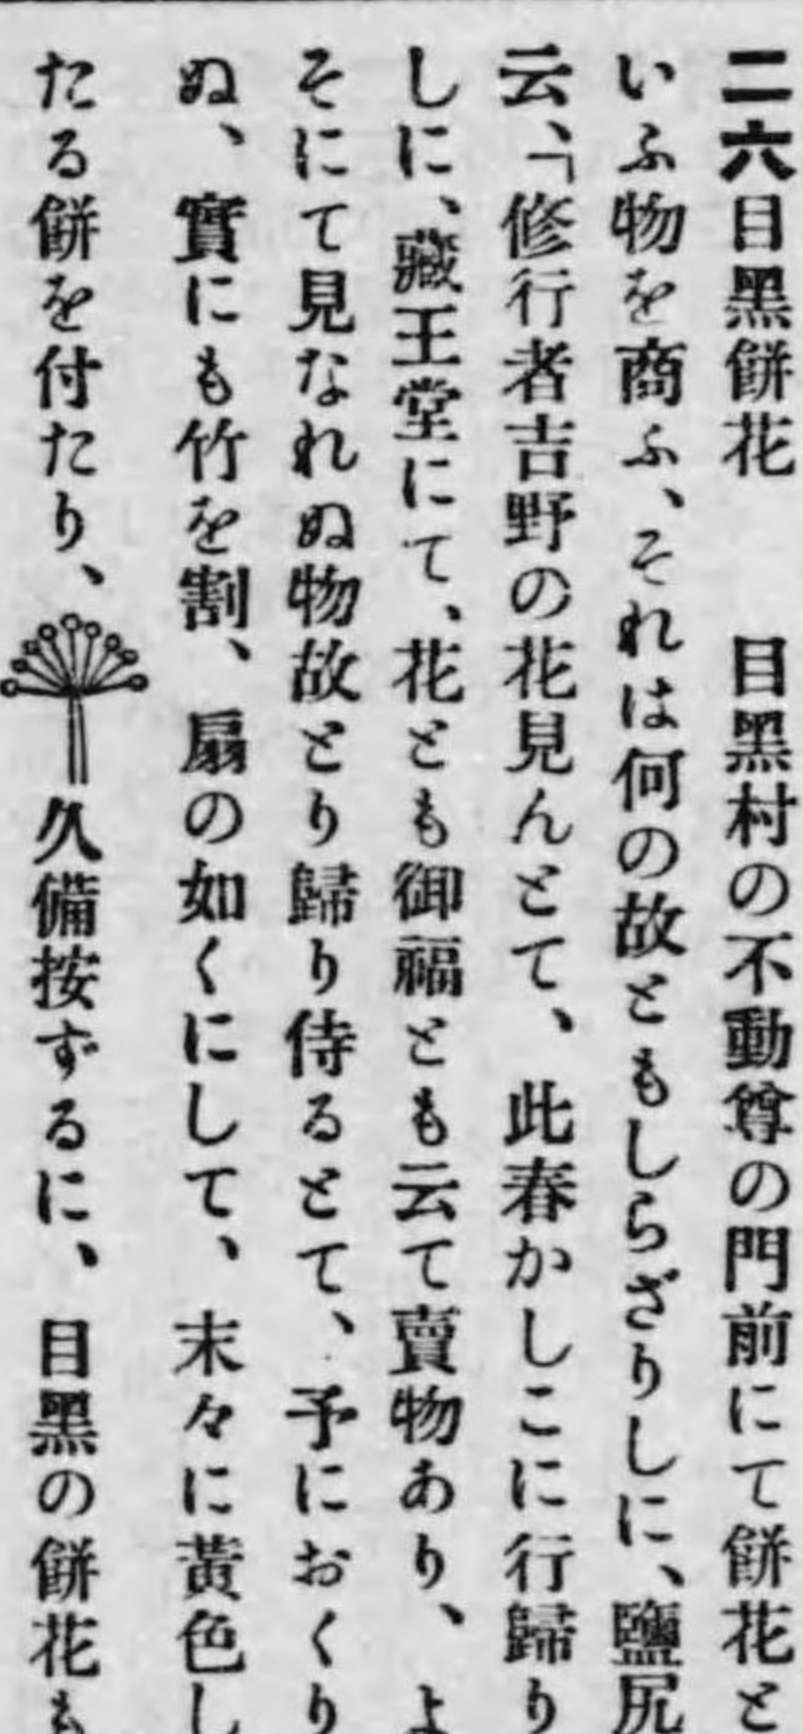 二六目黑餅花　　目黑村の不動尊の門前にて餅花と
いふ物を商ふ、それは何の故ともしらざりしに、鹽尻
云、「修行者吉野の花見んとて、此春かしこに行歸り
しに、藏王堂にて、花とも御福とも云て賣物あり、よ
そにて見なれぬ物故とり歸り侍るとて、予におくり
ぬ、實にも竹を割、扇の如くにして、末々に黃色し
たる餅を付たり、久備按ずるに、目黑の餅花も